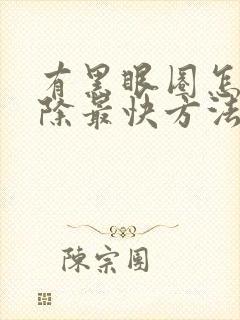 有黑眼圈怎
除最快方法
陳宗團